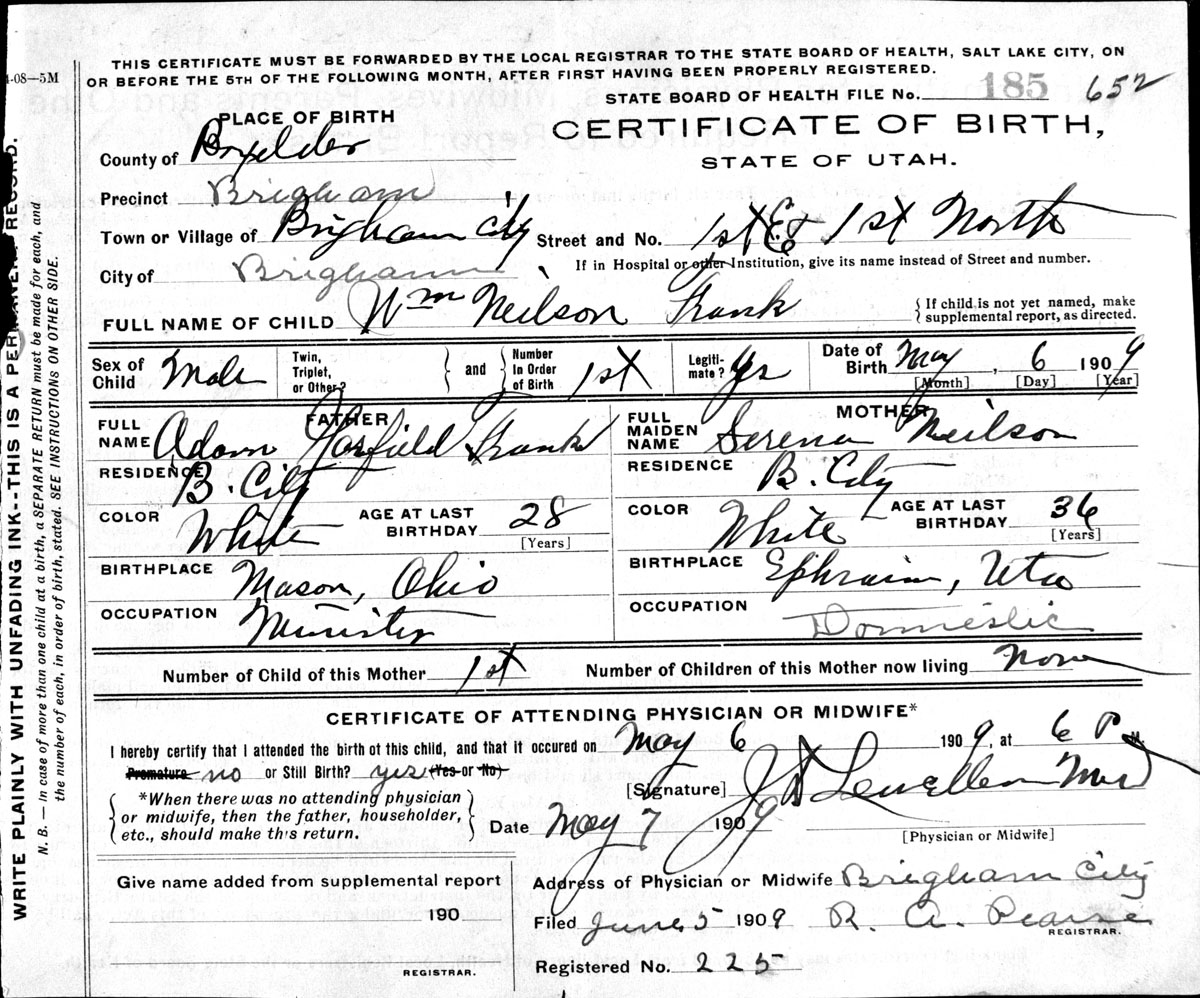 THIS CERTIFICATE MUST BE FORWARDED BY THE LOCAL REGISTRAR TO THE STATE BOARD OF HEALTH, SALT LAKE CITY, ON
-08—5M
OR BEFORE THE 5TH OF THE FOLLOWING MONTH, AFTER FIRST HAVING BEEN PROPERLY REGISTERED.
STATE BOARD OF HEALTH FILE No. 185 652
PLACE OF BIRTH
CERTIFICATE OF BIRTH,
STATE OF UTAH.
County of Boxelder
Precinct Brigham
Town or Village of Brigham City Street and No. 1st E & 1st North
City of Brigham
If in Hospital or other Institution, give its name instead of Street and number.
FULL NAME OF CHILD Wm Neilson Frank
{ If child is not yet named, make
supplemental report, as directed.
Sex of Child Male Twin, Triplet, or Other? } and { Number In Order of Birth 1st Legiti-mate? Yes Date of Birth May, 6 1909
[Month] [Day] [Year]
FATHER
FULL NAME Adam Garfield Frank
RESIDENCE B. City
COLOR White AGE AT LAST BIRTHDAY 28
[Years]
BIRTHPLACE Mason, Ohio
OCCUPATION Minister
MOTHER
FULL MAIDEN NAME Serena Neilson
RESIDENCE B. City
COLOR White AGE AT LAST BIRTHDAY 36
[Years]
BIRTHPLACE Ephraim, Uta
OCCUPATION Domestic
Number of Child of this Mother 1st Number of Children of this Mother now living None
CERTIFICATE OF ATTENDING PHYSICIAN OR MIDWIFE*
I hereby certify that I attended the birth of this child, and that it occured on May 6 1909, at 6 P M
Premature no or Still Birth? yes (Yes or No)
{ *When there was no attending physician
or midwife, then the father, householder,
etc., should make this return. }
[Signature] J D Lewellen MD
Date May 7 1909
[Physician or Midwife]
Give name added from supplemental report
190
REGISTRAR.
Address of Physician or Midwife Brigham City
Filed June 5 1909 R. A. Pearse
REGISTRAR.
Registered No. 225
WRITE PLAINLY WITH UNFADING INK--THIS IS A PERMANENT RECORD.
N. B. — In case of more than one child at a birth, a SEPARATE RETURN must be made for each, and
the number of each, in order of birth, stated. SEE INSTRUCTIONS ON OTHER SIDE.